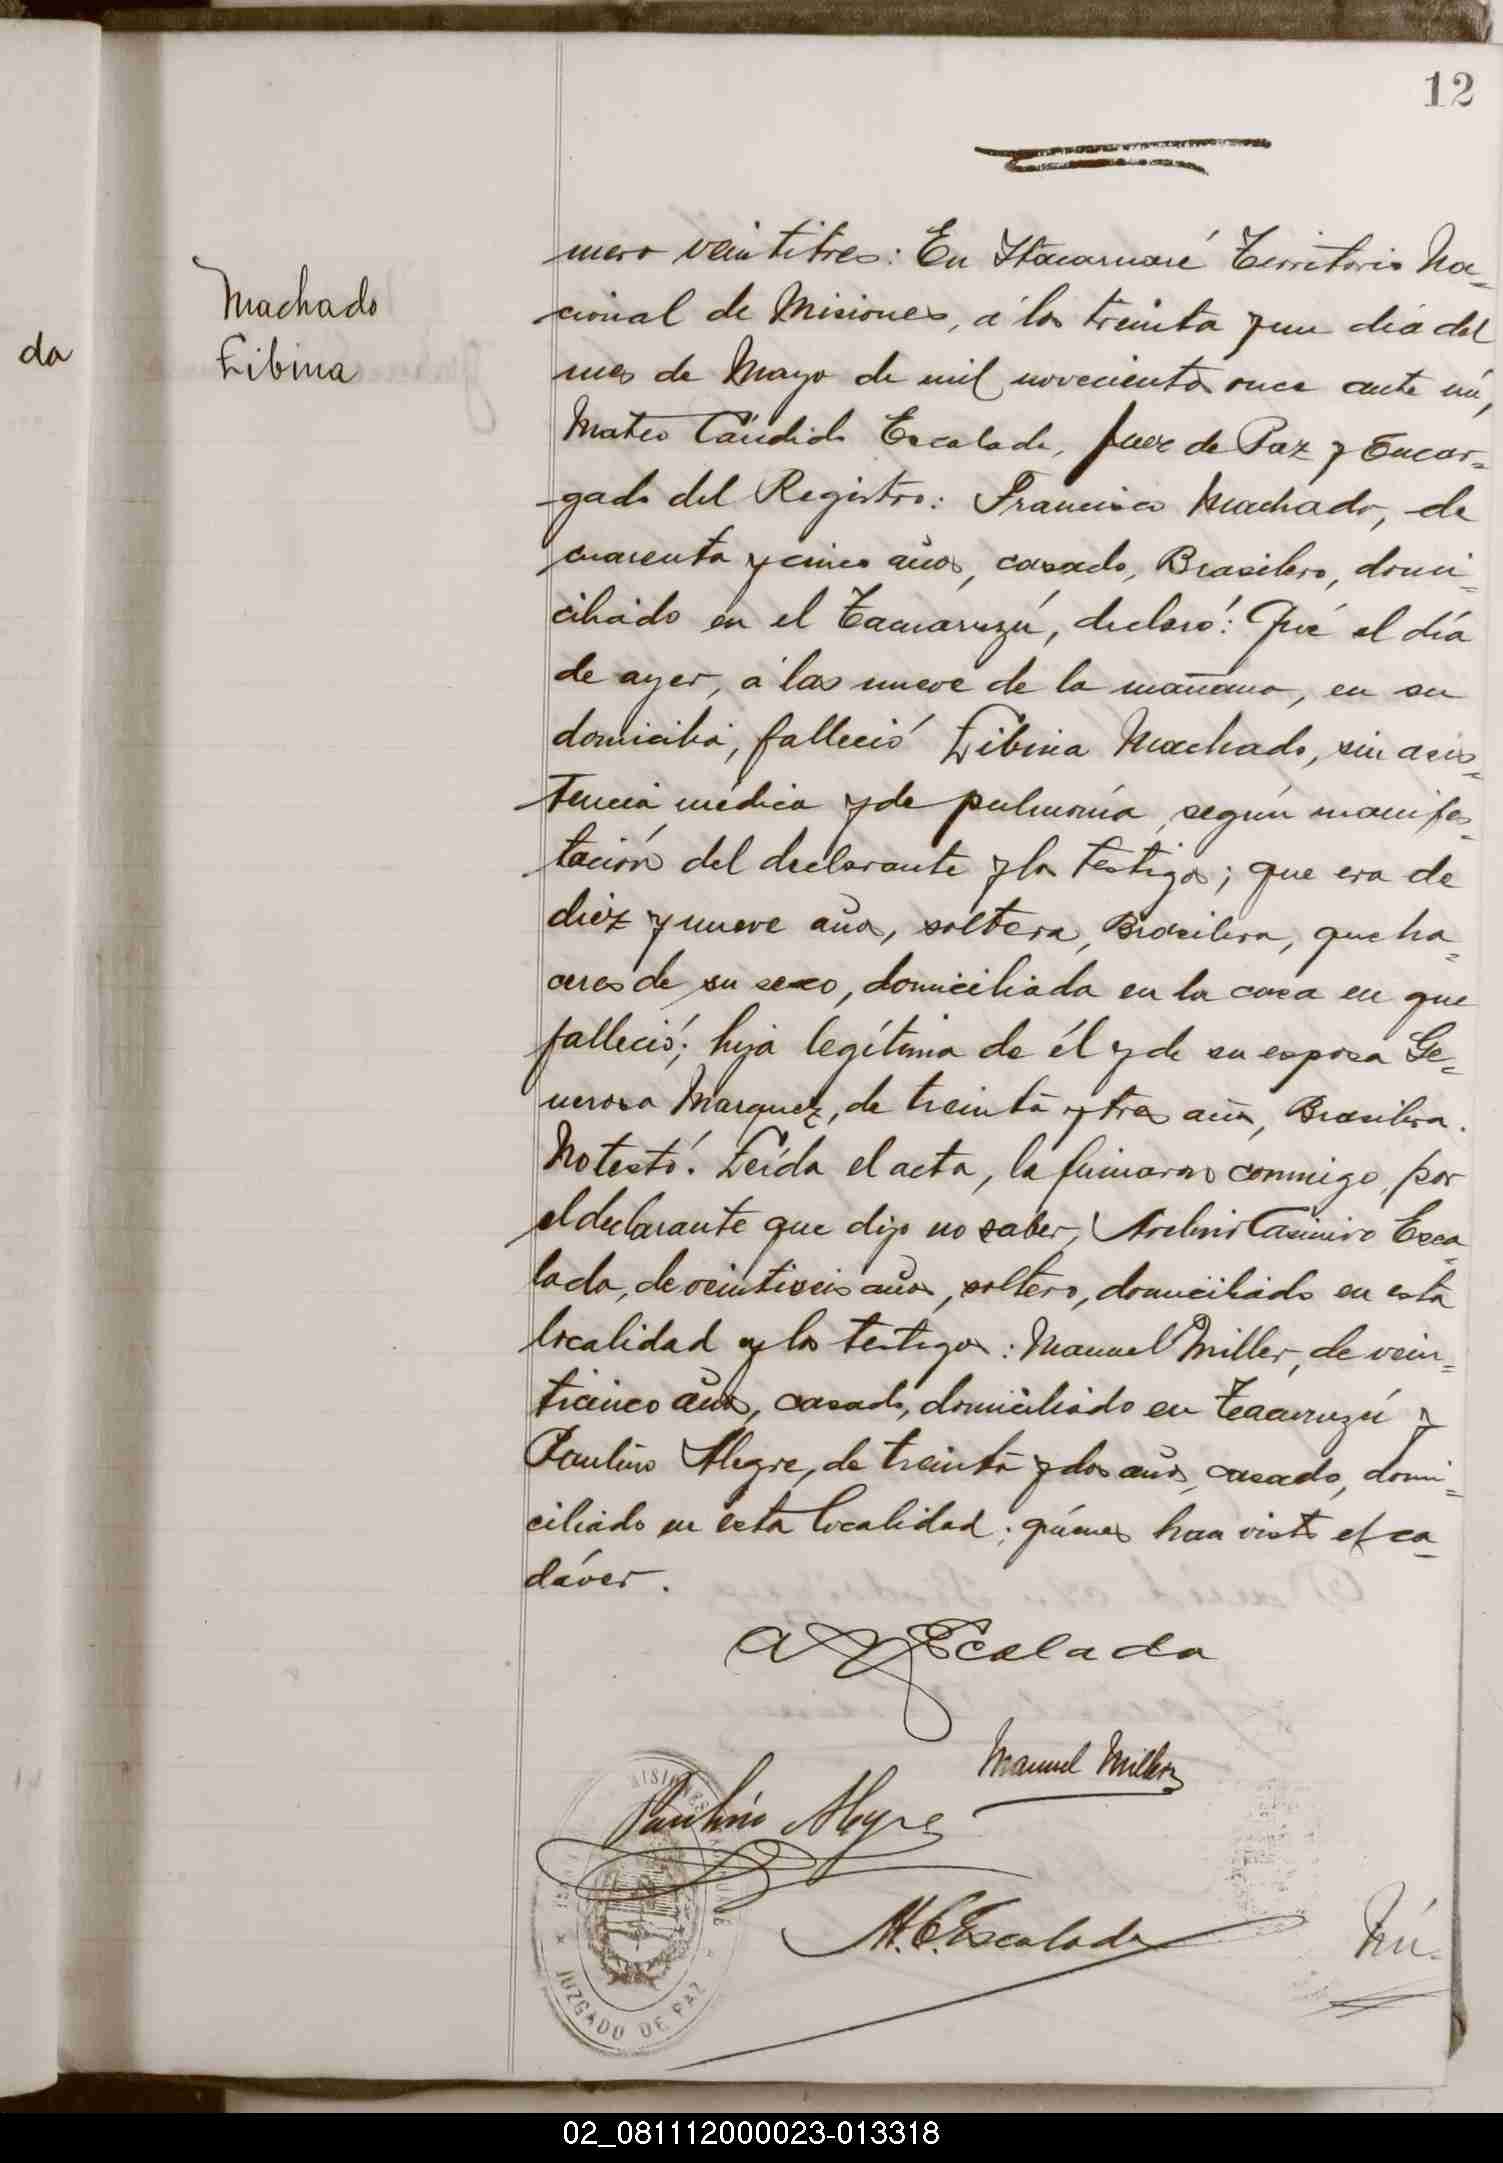 12
da
Machado
Libina
mero veintitres: En Itacaruaré Territorio Na-
cional de Misiones, á los treinta y un dia del
mes de Mayo de mil novecientos once ante mí,
Mateo Cándido Escalada, Juez de Paz y Encar-
gado del Registro: Francisco Machado, de
cuarenta y cinco años, casado, Brasilero, domi-
ciliado en el Tacuaruzú, declaró: Qué el día
de ayer, á las nueve de la mañana, en su
domicilio, falleció Libina Machado, sin asis-
tencia médica y de pulmonía, según manifes-
tación del declarante y los testigos; que era de
diez y nueve años, soltera, Brasilera, queha-
ceres de su sexo, domiciliada en la casa en que
falleció; hija legítima de él y de su esposa Ge-
nerosa Marquez, de treinta y tres años, Brasilera.
No testó. Leída el acta, la firmaron conmigo, por
el declarante que dijo no saber, Casimiro Esca-
lada, de veintiseis años, soltero, domiciliado en esta
localidad y los testigos: Manuel Miller, de vein-
ticinco años, casado, domiciliado en Tacuaruzú y
Paulino Alegre, de treinta y dos años, casado, domi-
ciliado en esta localidad; quienes han visto el ca-
dáver.
Escalada
Manuel Miller
Paulino Alegre
M. C. Escalada
Nú-
MISIONES
JUZGADO DE PAZ
02_081112000023-013318